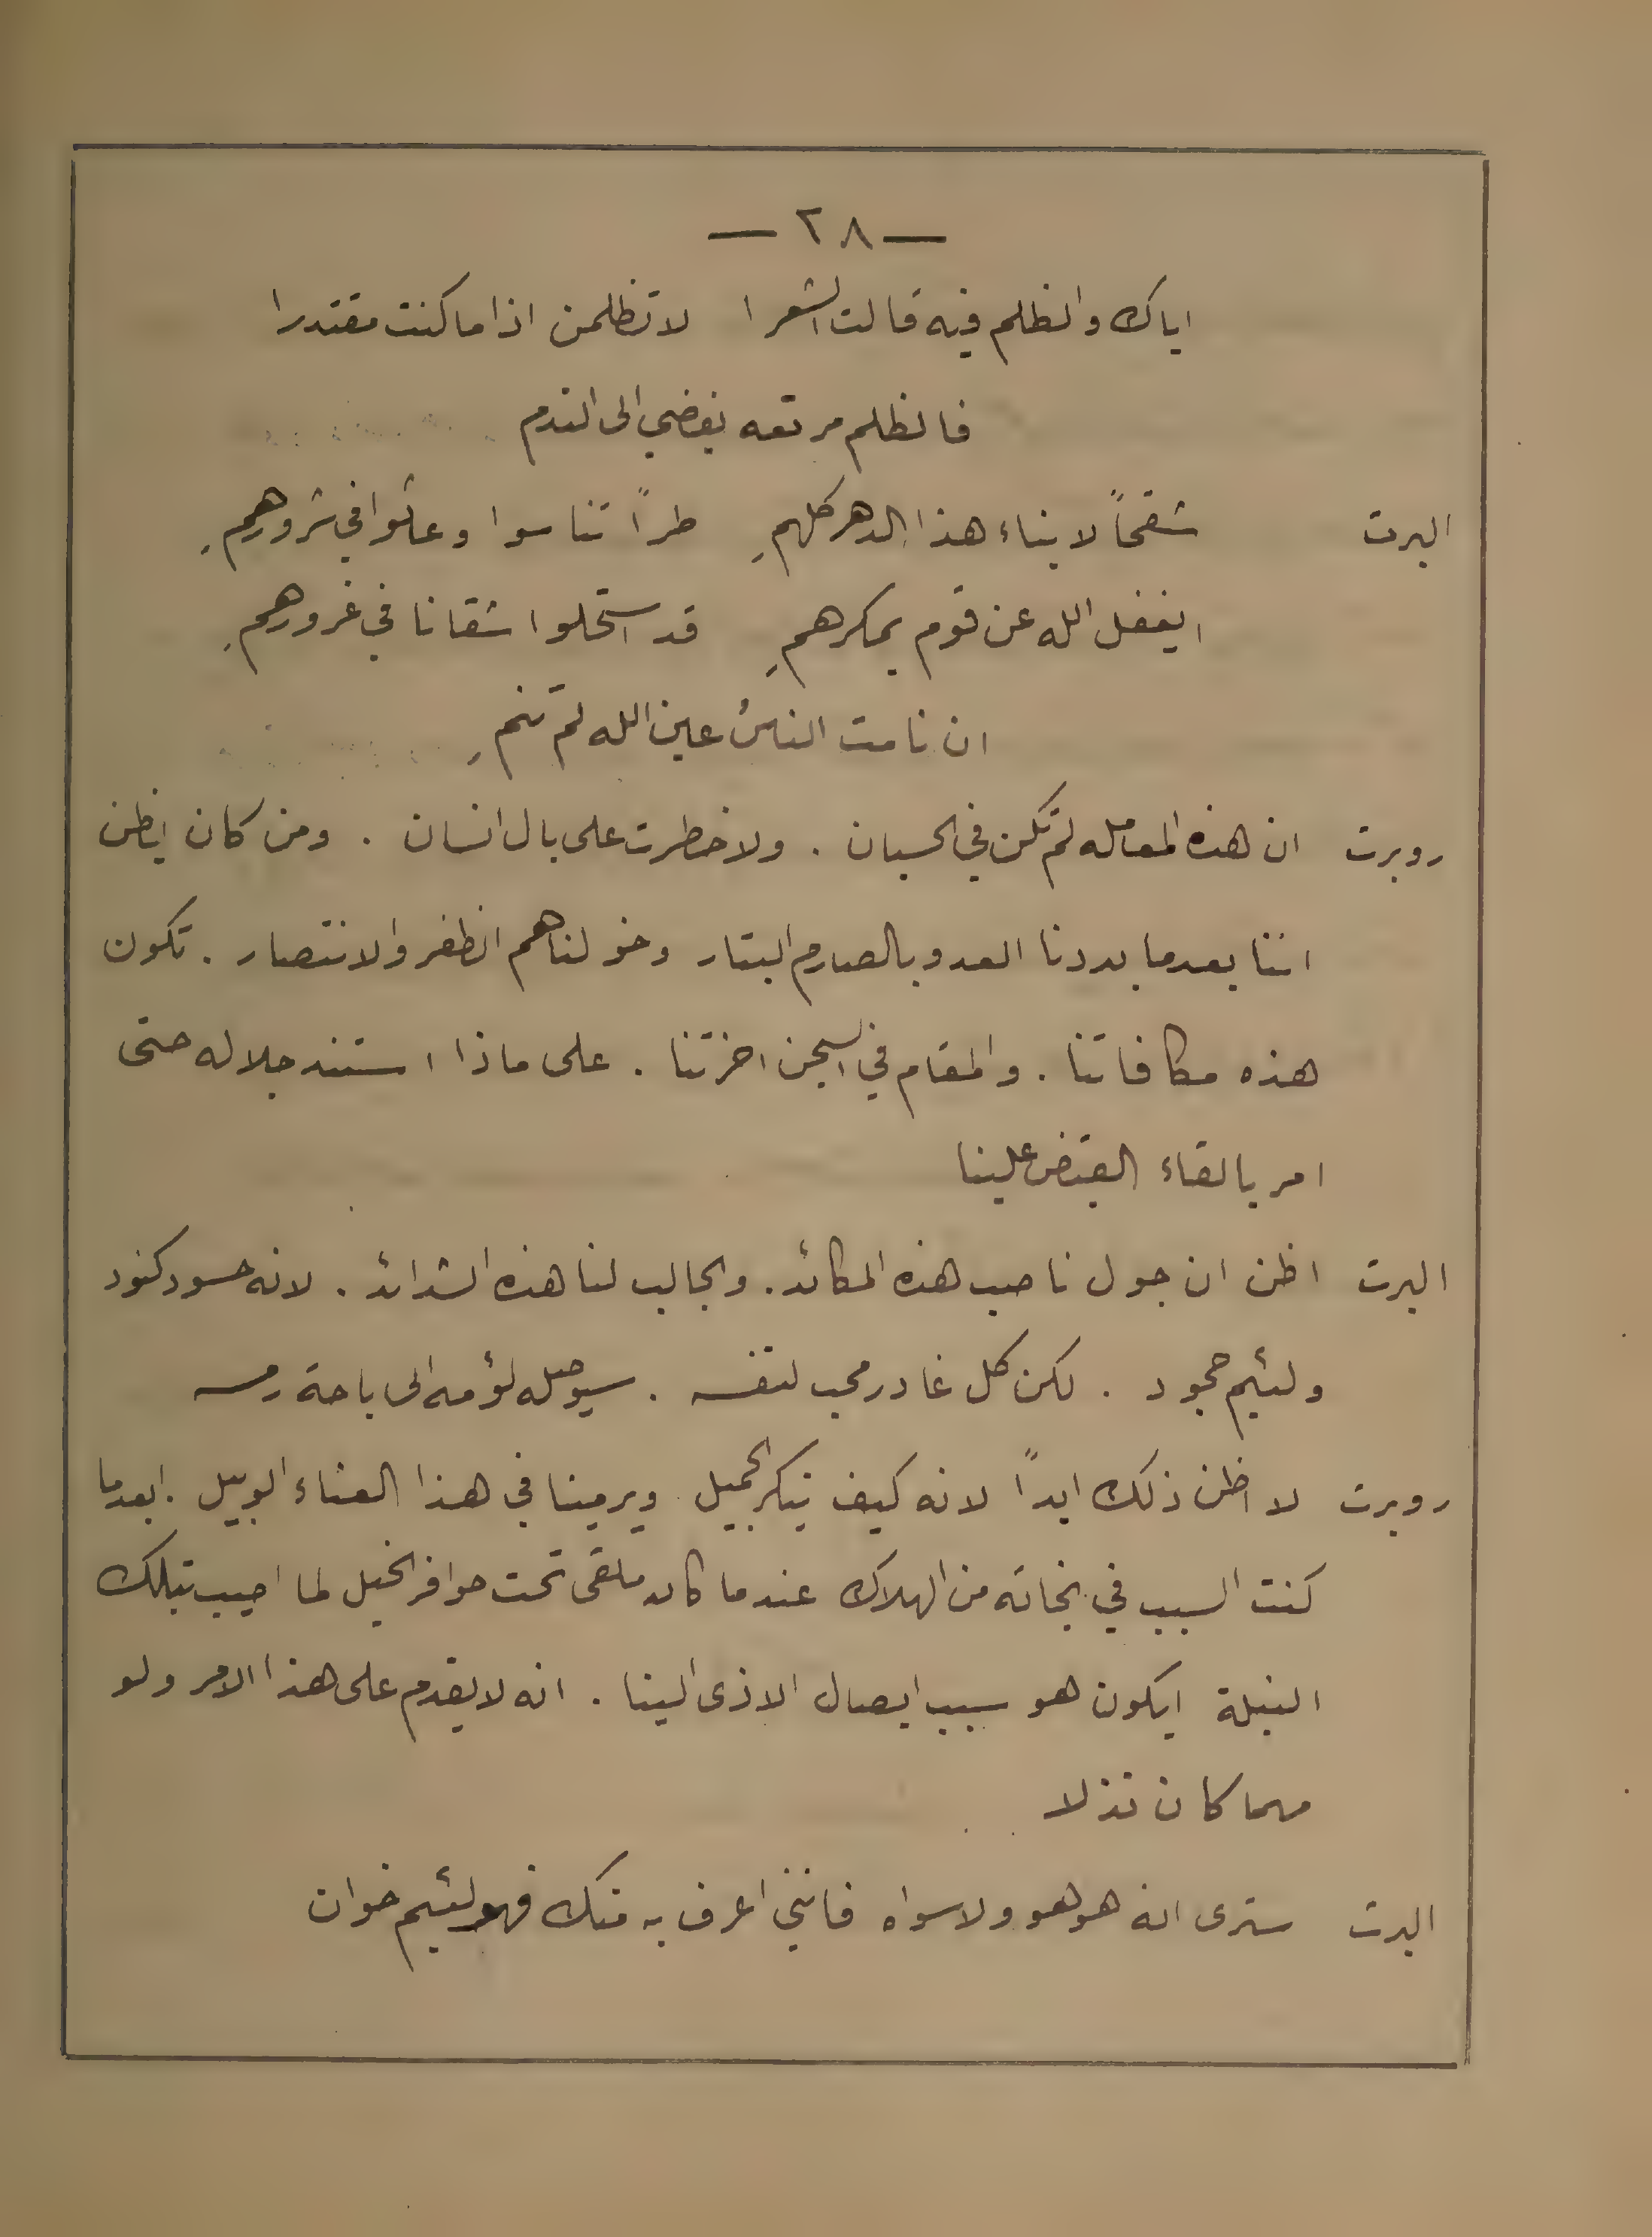 — ٢٨ —
اياك والظلم فيه قالت الشعرا لا تظلمن اذا ما كنت مقتدرا
فالظلم مرتعه يفضي الى الندم
البرت شقحاً لابناء هذا الدهر كلهمِ طراً تناسوا وعاثوا في شرورهمِ
ايغفل الله عن قوم بمكرهمِ قد استحلوا شقانا في غرورهمِ
ان نامت الناسُ عين الله لم تنمِ
روبرت ان هذه المعامله لم تكن في الحسبان . ولا خطرت على بال انسان . ومن كان يظن
اننا بعدما بددنا العدو بالصارم البتار وخولناهم الظفر والانتصار . تكون
هذه مكافاتنا . والمقام في السجن اخرتنا . على ماذا استند جلاله حتى
امر بالقاء القبض علينا
البرت اظن ان جول ناصب هذه المكائد . والجالب لنا هذه الشدائد . لانه حسود كنود
ولئيم جحود . لكن كل غادر محب لنفسه . سيوصله لؤمه الى باحة رمسه
روبرت لا اظن ذلك ابداً لانه كيف ينكر الجميل ويرمينا في هذا العناء الوبيل . ابعدما
كنت السبب في نجاته من الهلاك عندما كان ملقى تحت حوافر الخيل لما اصيب بتلك
النبلة ايكون هو سبب ايصال الاذى الينا . انه لا يقدم على هذا الامر ولو
مهما كان نذلا
البرت سترى انه هو هو ولا سواه فانني اعرف به منك فهو لئيم خوان